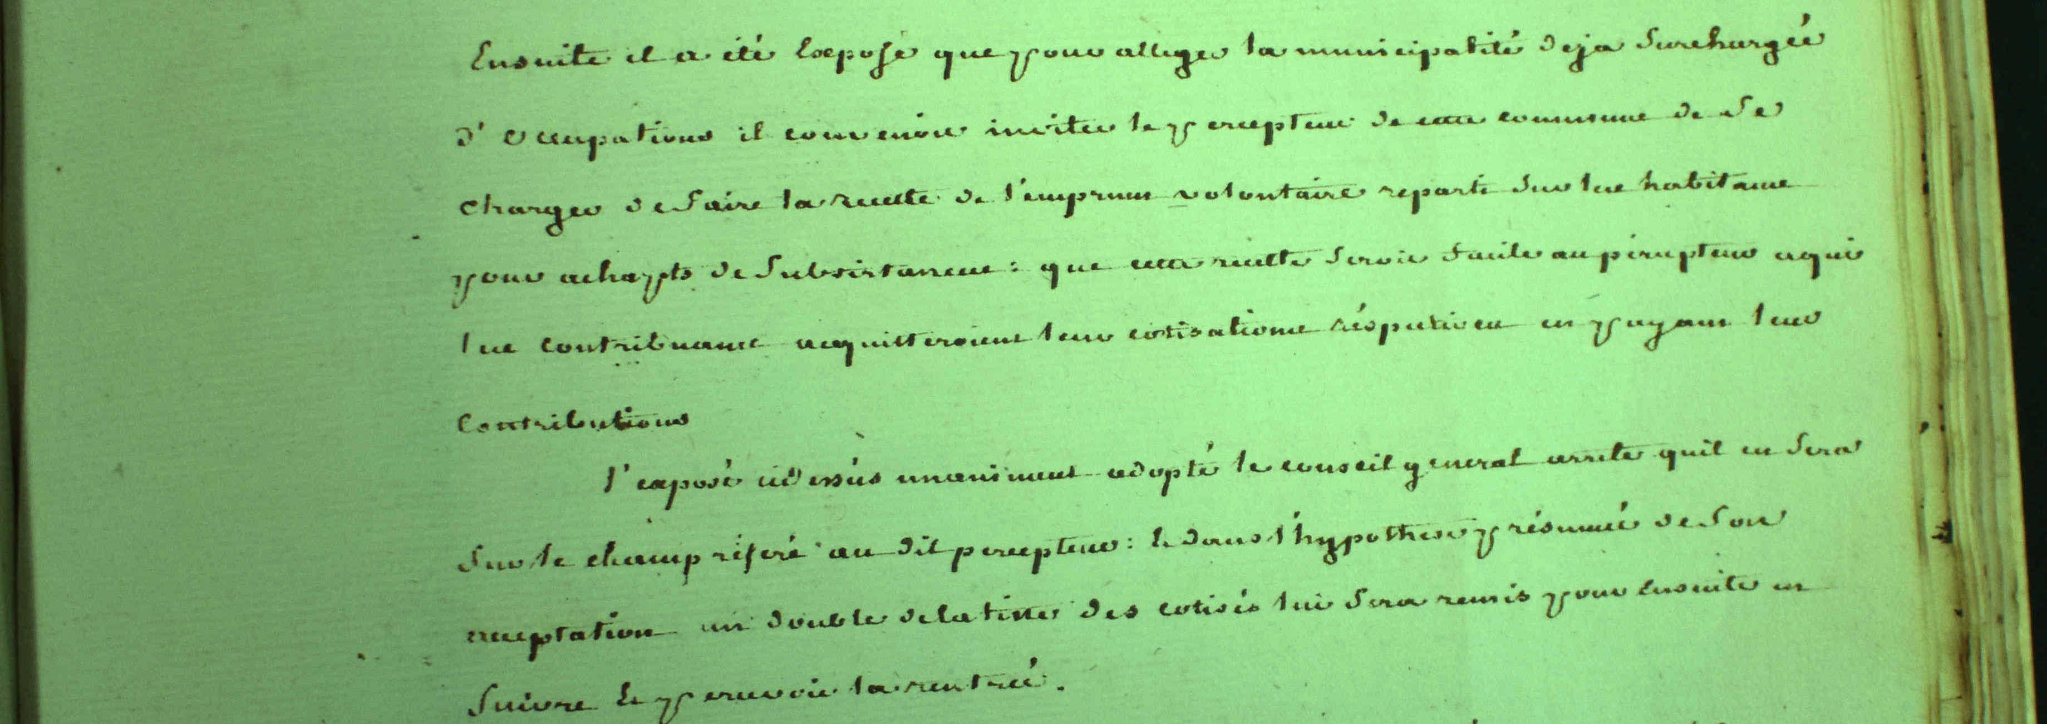 Ensuite il a été Exposé que pour alleger la municipalité deja Surchargée
d'occupations il convenoit inviter le percepteur de cette commune de Se
charger de faire la recette de l'emprunt volontaire reparti sur les habitants
pour achapts de Subsistances : que cette recette Seroit facile au percepteur a qui
les contribuants acquitteroient leurs cotisations réspectives en payant leurs
Contributions
l'exposé cidessus unanimement adopté le conseil general arrete quil en Sera
Sur le champ référé au dit percepteur : Et dans l'hypothese présumée de Son
acceptation un double de la liste des cotisés lui Sera remis pour Ensuite en
Suivre Et percevoir la rentrée.